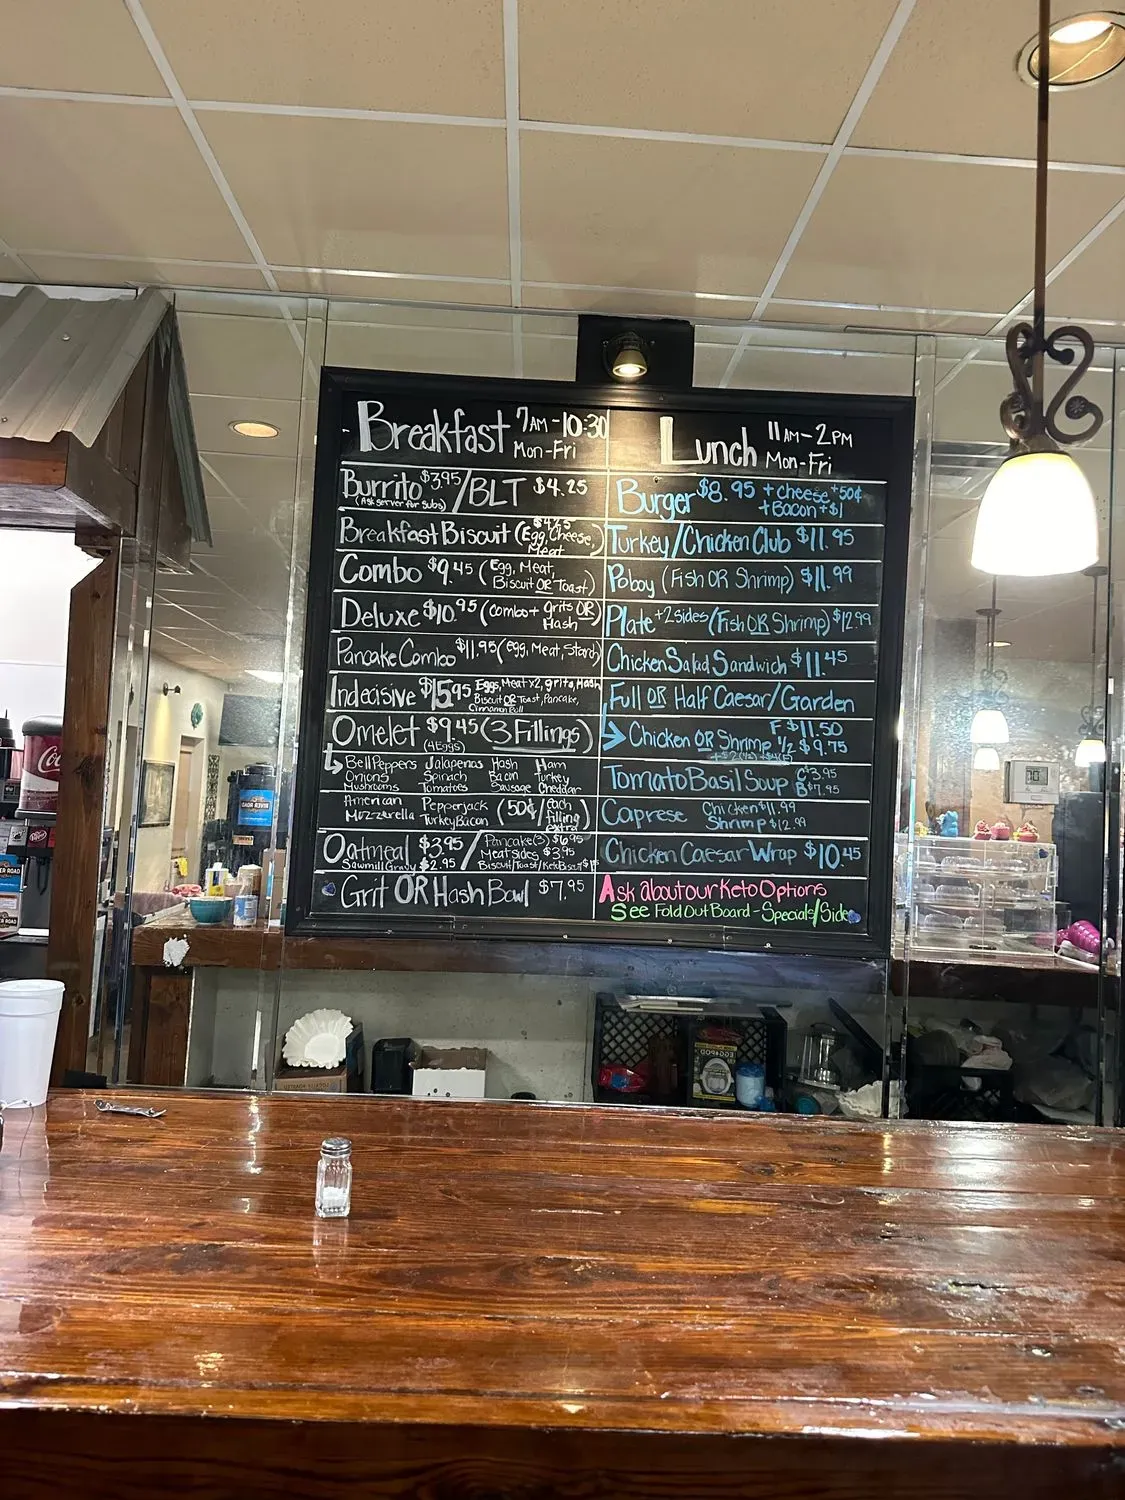 Breakfast 7AM-10:30
Mon-Fri
Burrito $3.95/BLT $4.25
(Ask server for subs)
Breakfast Biscuit (Egg, Cheese,
Meat)
Combo $9.45 (Egg, Meat,
Biscuit OR Toast)
Deluxe $10.95 (combo + grits OR
Hash)
Pancake Combo $11.95 (egg, Meat, Starch)
Indecisive $15.95 Eggs, Meat x2, grits, Hash
Biscuit OR Toast, Pancake,
Cinnamon Roll
Omelet $9.45 (3 Fillings)
(4 Eggs)
Bell Peppers Jalapenos Hash Ham
Onions Spinach Bacon Turkey
Mushrooms Tomatoes Sausage Cheddar
American Pepperjack (50¢/each
Mozzarella Turkey Bacon filling
extra)
Oatmeal $3.95 / Pancake(3) $6.95
Meat sides $3.95
Sawmill Gravy $2.95 Biscuit/Toast/Keto Biscuit
Grit OR Hash Bowl $7.95
Lunch 11AM-2PM
Mon-Fri
Burger $8.95 + cheese +50¢
+ Bacon +$1
Turkey/Chicken Club $11.95
Poboy (Fish OR Shrimp) $11.99
Plate +2 sides/(Fish OR Shrimp) $12.99
Chicken Salad Sandwich $11.45
Full OR Half Caesar/Garden
Chicken OR Shrimp F $11.50
1/2 $9.75
Tomato Basil Soup C $3.95
B $7.95
Caprese Chicken $11.99
Shrimp $12.99
Chicken Caesar Wrap $10.45
Ask about our Keto Options
See Fold Out Board - Specials/Sides
Coca
Dr Pepper
EGGPOD